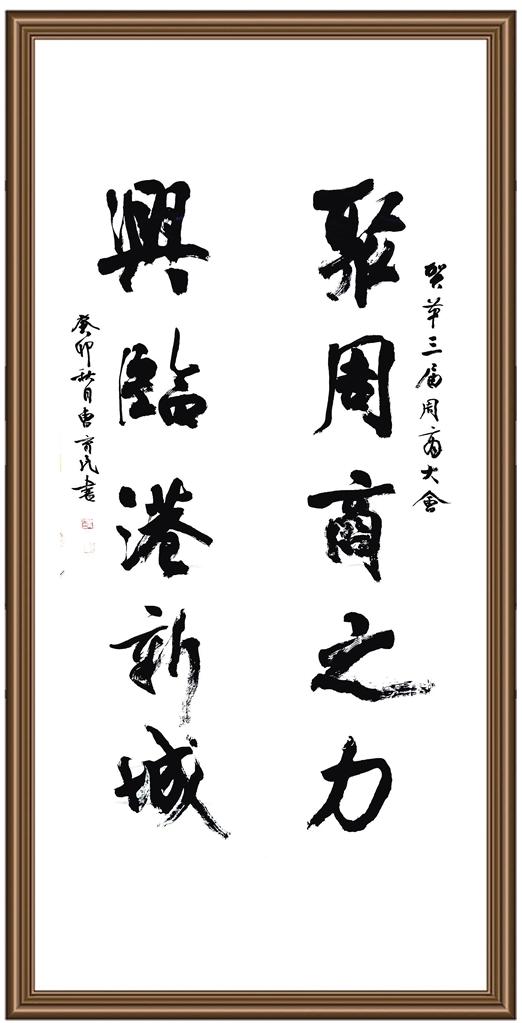 贺第三届周商大会
聚周商之力
興臨港新城
癸卯秋月曹育民書